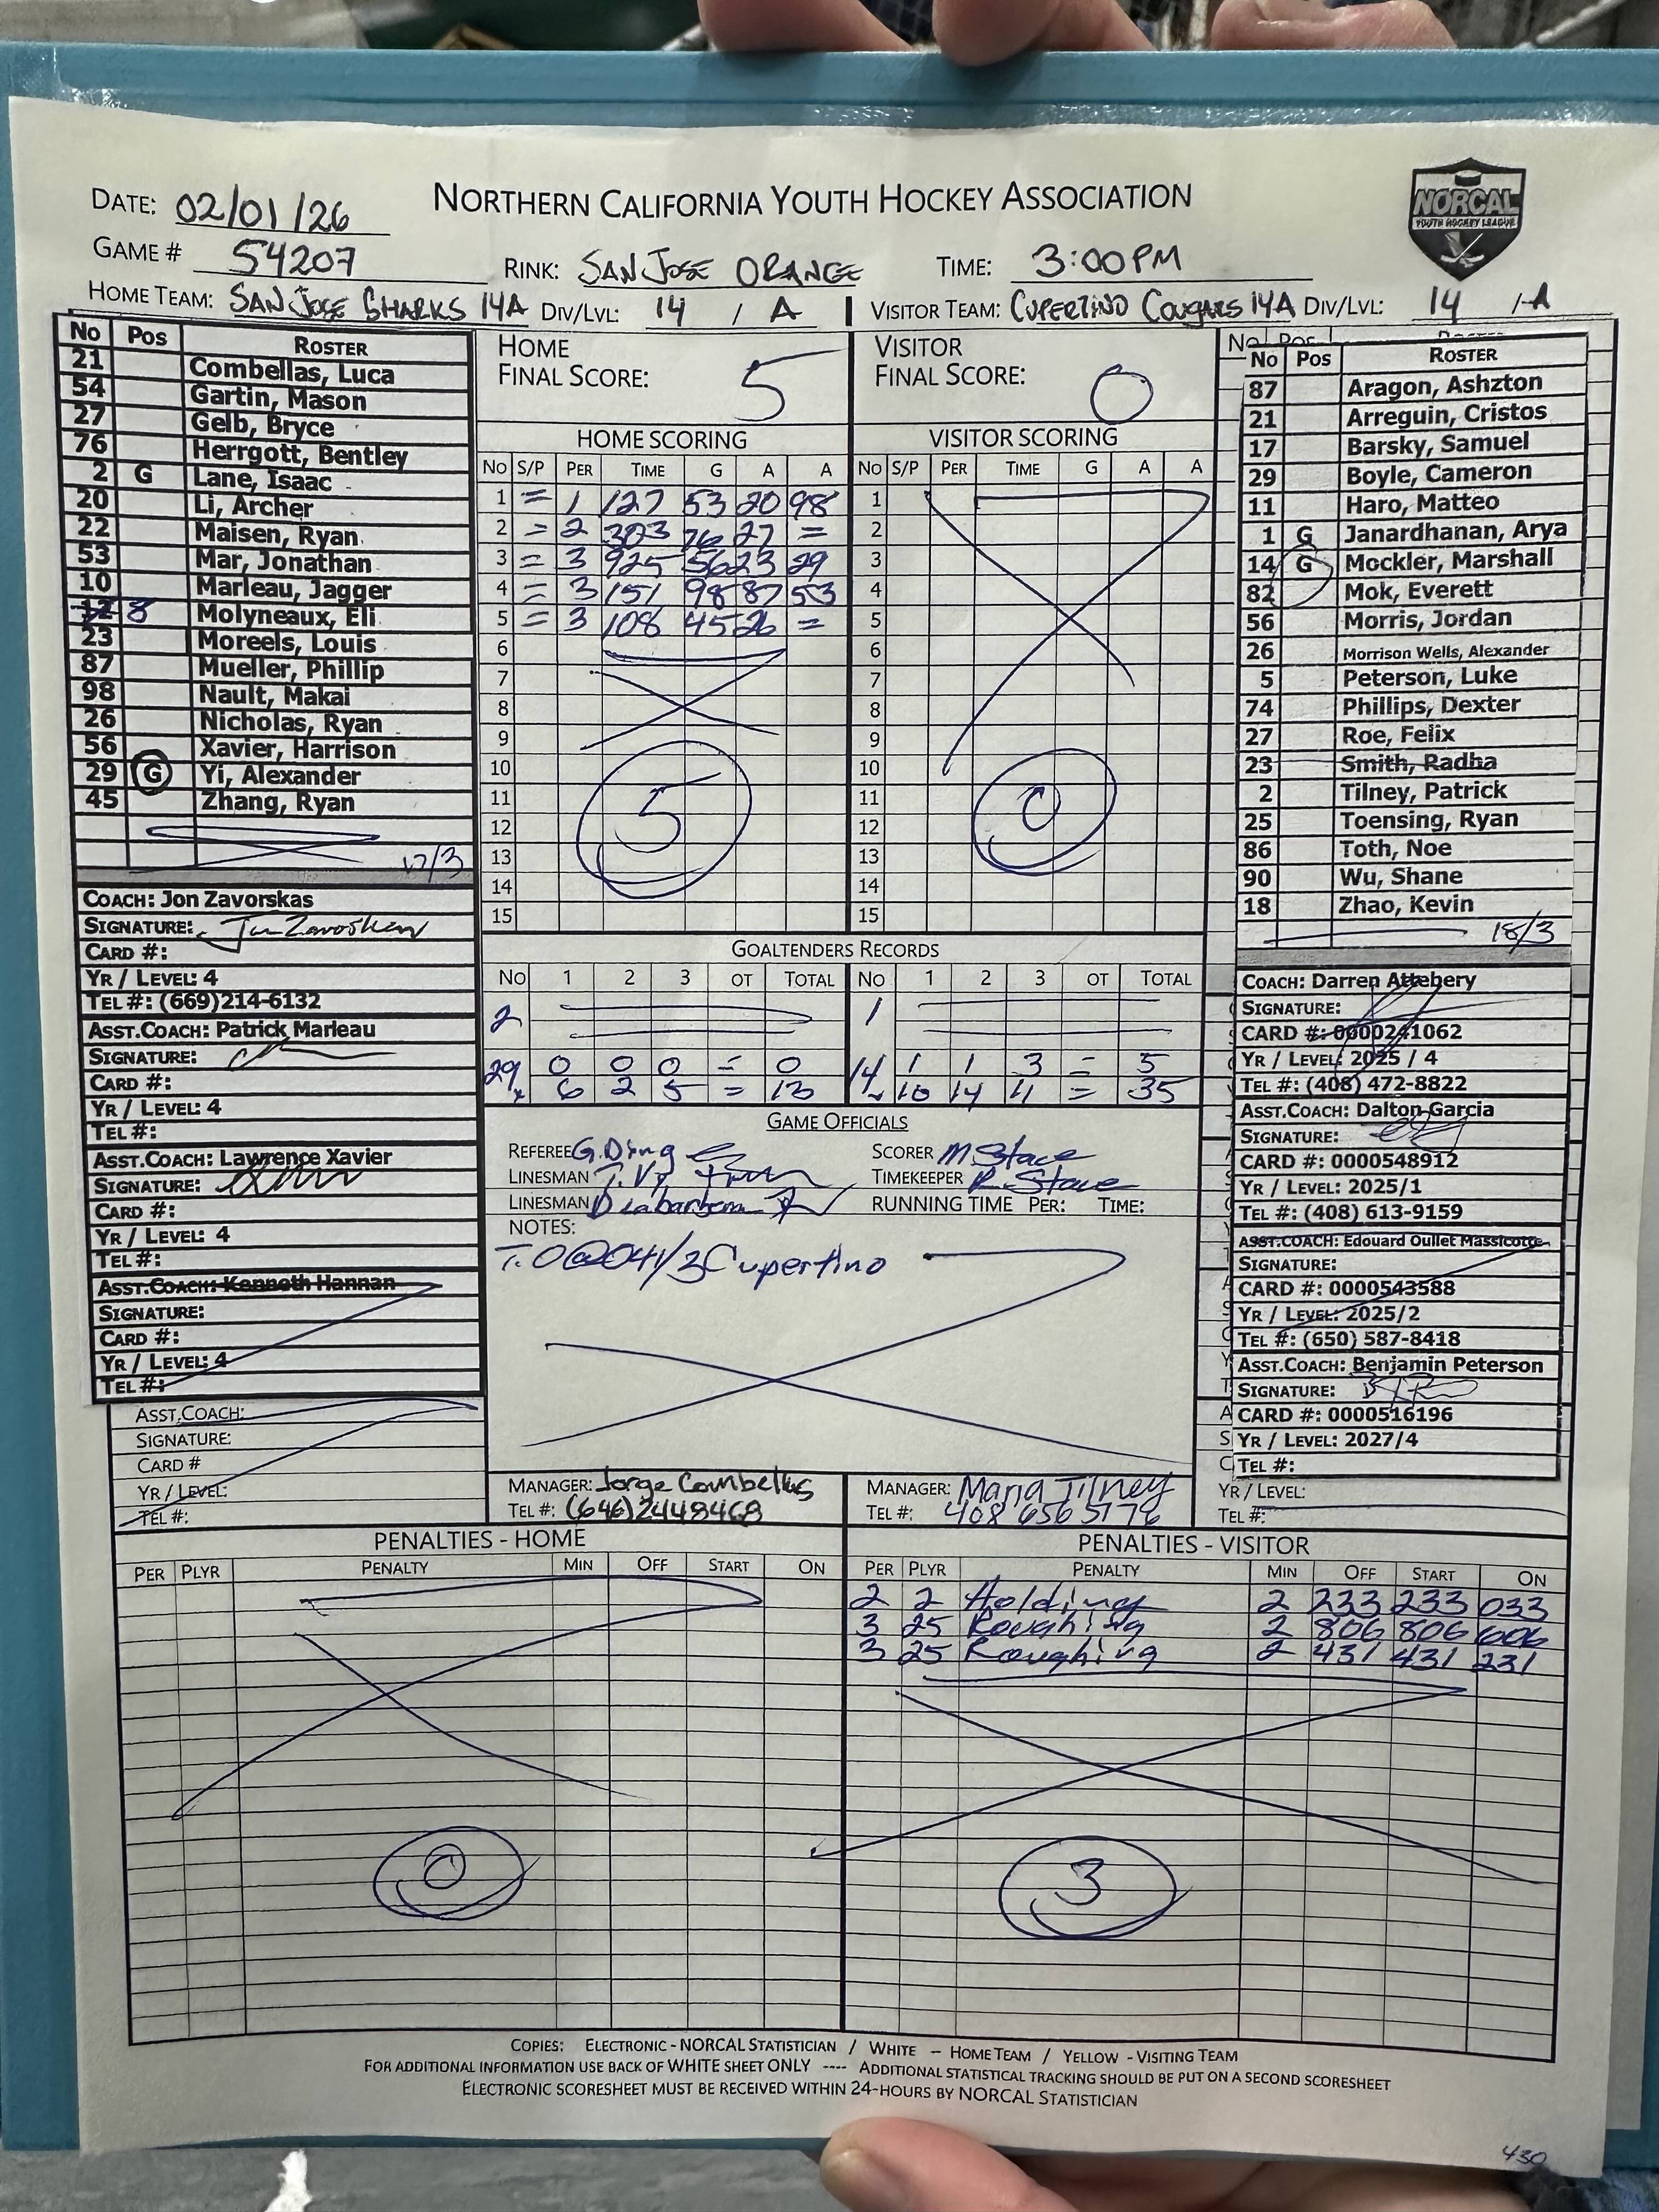 NORTHERN CALIFORNIA YOUTH HOCKEY ASSOCIATION
NORCAL
YOUTH HOCKEY LEAGUE
DATE: 02/01/26
GAME # 54207
RINK: SAN JOSE ORANGE
TIME: 3:00PM
HOME TEAM: SAN JOSE SHARKS 14A DIV/LVL: 14 / A
VISITOR TEAM: CUPERTINO COUGARS 14A DIV/LVL: 14 / A
No Pos ROSTER
21 Combellas, Luca
54 Gartin, Mason
27 Gelb, Bryce
76 Herrgott, Bentley
2 G Lane, Isaac
20 Li, Archer
22 Maisen, Ryan
53 Mar, Jonathan
10 Marleau, Jagger
12 8 Molyneaux, Eli
23 Moreels, Louis
87 Mueller, Phillip
98 Nault, Makai
26 Nicholas, Ryan
56 Xavier, Harrison
29 G Yi, Alexander
45 Zhang, Ryan
17/3
COACH: Jon Zavorskas
SIGNATURE: Jon Zavorskas
CARD #:
YR / LEVEL: 4
TEL #: (669)214-6132
ASST.COACH: Patrick Marleau
SIGNATURE:
CARD #:
YR / LEVEL: 4
TEL #:
ASST.COACH: Lawrence Xavier
SIGNATURE:
CARD #:
YR / LEVEL: 4
TEL #:
ASST.COACH: Kenneth Hannan
SIGNATURE:
CARD #:
YR / LEVEL: 4
TEL #:
ASST.COACH:
SIGNATURE:
CARD #
YR / LEVEL:
TEL #:
HOME
FINAL SCORE: 5
VISITOR
FINAL SCORE: 0
HOME SCORING
No S/P PER TIME G A A
1 = 1 127 53 20 98
2 = 2 303 76 27 =
3 = 3 925 56 23 29
4 = 3 151 98 87 53
5 = 3 108 45 26 =
6
7
8
9
10
11
12
13
14
15
5
VISITOR SCORING
No S/P PER TIME G A A
1
2
3
4
5
6
7
8
9
10
11
12
13
14
15
0
GOALTENDERS RECORDS
No 1 2 3 OT TOTAL
2
29 0 0 0 = 0
6 2 5 = 13
No 1 2 3 OT TOTAL
1
14 1 1 3 = 5
10 14 11 = 35
GAME OFFICIALS
REFEREE G. Ding
LINESMAN T. Vy
LINESMAN
SCORER M Stace
TIMEKEEPER R Stace
RUNNING TIME PER: TIME:
NOTES:
T.O @ 041/3 Cupertino
MANAGER: Jorge Combellas
TEL #: (646)2448468
MANAGER: Maria Tilney
TEL #: 408 656 5776
No Pos ROSTER
87 Aragon, Ashzton
21 Arreguin, Cristos
17 Barsky, Samuel
29 Boyle, Cameron
11 Haro, Matteo
1 G Janardhanan, Arya
14 G Mockler, Marshall
82 Mok, Everett
56 Morris, Jordan
26 Morrison Wells, Alexander
5 Peterson, Luke
74 Phillips, Dexter
27 Roe, Felix
23 Smith, Radha
2 Tilney, Patrick
25 Toensing, Ryan
86 Toth, Noe
90 Wu, Shane
18 Zhao, Kevin
18/3
COACH: Darren Attebery
SIGNATURE:
CARD #: 0000241062
YR / LEVEL: 2025 / 4
TEL #: (408) 472-8822
ASST.COACH: Dalton Garcia
SIGNATURE:
CARD #: 0000548912
YR / LEVEL: 2025/1
TEL #: (408) 613-9159
ASST.COACH: Edouard Oullet Massicotte
SIGNATURE:
CARD #: 0000543588
YR / LEVEL: 2025/2
TEL #: (650) 587-8418
ASST.COACH: Benjamin Peterson
SIGNATURE:
CARD #: 0000516196
YR / LEVEL: 2027/4
TEL #:
YR / LEVEL:
TEL #:
PENALTIES - HOME
PER PLYR PENALTY MIN OFF START ON
0
PENALTIES - VISITOR
PER PLYR PENALTY MIN OFF START ON
2 2 Holding 2 233 233 033
3 25 Roughing 2 806 806 606
3 25 Roughing 2 431 431 231
3
COPIES: ELECTRONIC - NORCAL STATISTICIAN / WHITE – HOME TEAM / YELLOW - VISITING TEAM
FOR ADDITIONAL INFORMATION USE BACK OF WHITE SHEET ONLY ---- ADDITIONAL STATISTICAL TRACKING SHOULD BE PUT ON A SECOND SCORESHEET
ELECTRONIC SCORESHEET MUST BE RECEIVED WITHIN 24-HOURS BY NORCAL STATISTICIAN
430